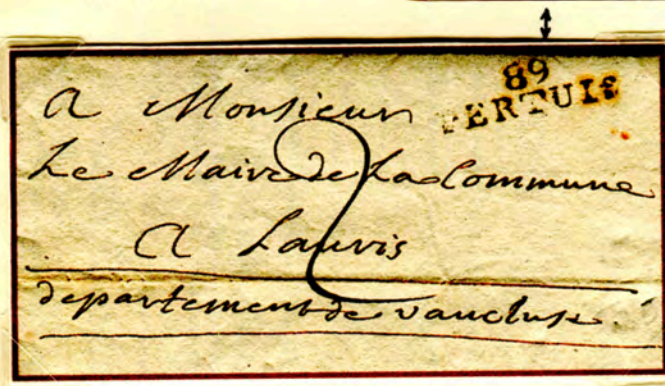 89
PERTUIS
A Monsieur
Le Maire de La Commune
A Lauris
2
departement de vaucluse